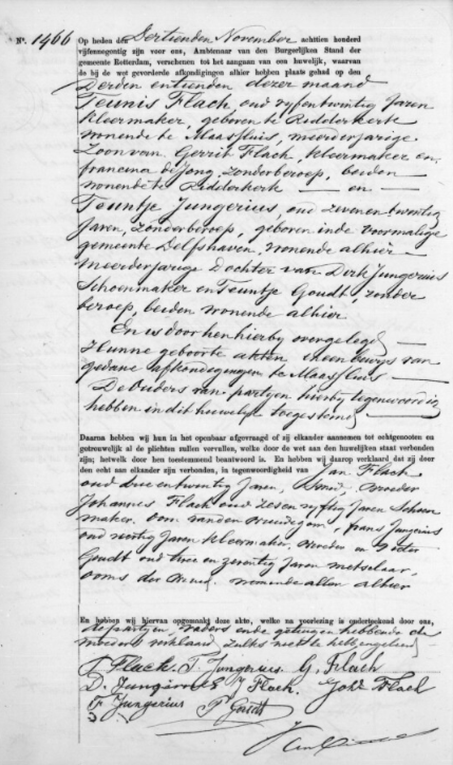 N°. 1466 Op heden den Dertienden November achttien honderd
vijfennegentig zijn voor ons, Ambtenaar van den Burgerlijken Stand der
gemeente Rotterdam, verschenen tot het aangaan van een huwelijk, waarvan
de bij de wet gevorderde afkondigingen alhier hebben plaats gehad op den
Derden en tienden dezer maand
Teunis Flach, oud vyfentwintig Jaren
kleermaker, geboren te Ridderkerk
wonende te Maassluis, meerderjarige
Zoon van Gerrit Flach, kleermaker en
francina de Jong, zonder beroep, beiden
wonende te Ridderkerk — en —
Teuntje Jungerius, oud zevenentwintig
Jaren, zonder beroep, geboren in de voormalige
gemeente Delfshaven, wonende alhier
meerderjarige Dochter van Dirk Jungerius
Schoenmaker en Teuntje Goudt, zonder
beroep, beiden wonende alhier.
En is door hen hierby overgelegd —
Hunne geboorte akten en een bewys van
gedane afkondigingen te Maassluis —
De Ouders van partyen hierby tegenwoordig
hebben in dit huwelyk toegestemd
Daarna hebben wij hun in het openbaar afgevraagd of zij elkander aannemen tot echtgenooten en
getrouwelijk al de plichten zullen vervullen, welke door de wet aan den huwelijken staat verbonden
zijn; hetwelk door hen toestemmend beantwoord is. En hebben wij daarop verklaard dat zij door
den echt aan elkander zijn verbonden, in tegenwoordigheid van Jan Flach
oud twee en twintig Jaren, Smid, broeder
Johannes Flach oud zes en vyftig Jaren Schoen
maker, Oom van den Bruidegom, frans Jungerius
oud veertig Jaren kleermaker, en Pieter
Goudt oud twee en zeventig Jaren metselaar,
ooms der Bruid, wonende allen alhier
En hebben wij hiervan opgemaakt deze akte, welke na voorlezing is onderteekend door ons,
de partyen, vaders en de getuigen hebbende de
moeders verklaard zulks niet te hebben geleerd
T Flach. T. Jungerius G. Flach
D. Jungerius J Flach. Joh<sup>s</sup> Flach
F Jungerius P Goudt